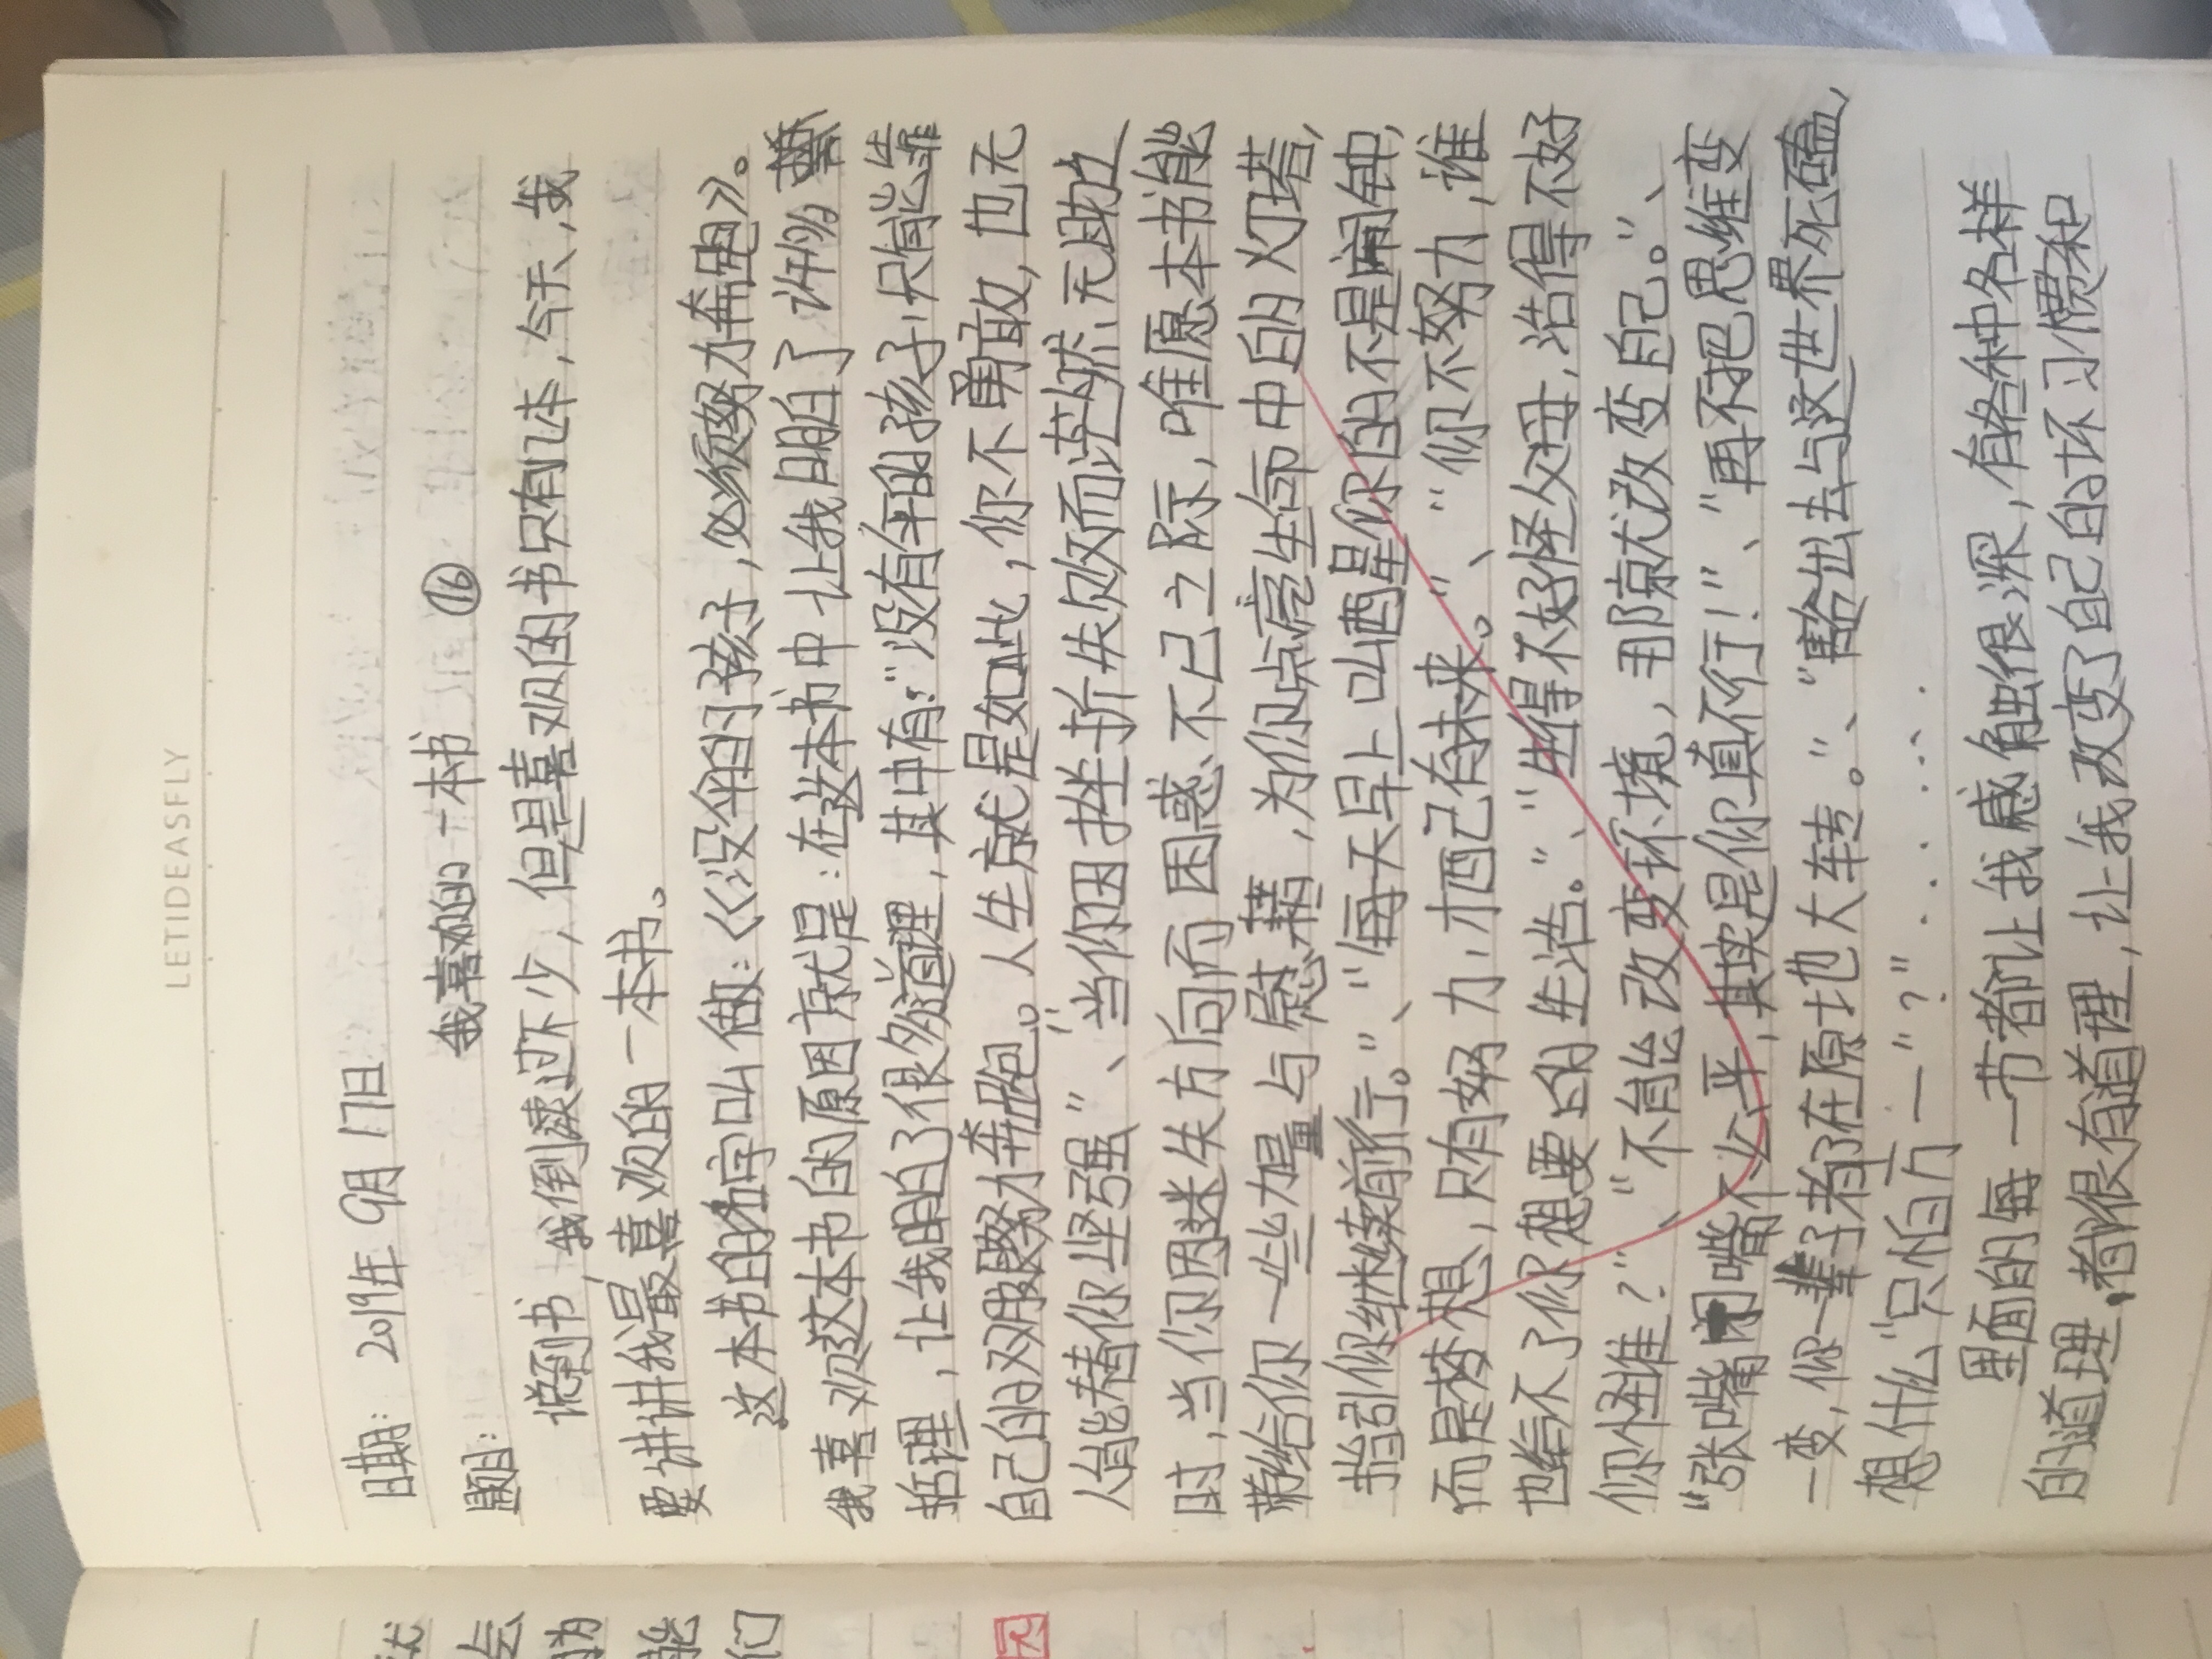 LETIDEASFLY
日期：2019年 9月 17日
题目： 我喜欢的一本书 ⑯
说到书，我倒读过不少，但是喜欢的书只有几本，今天，我
要讲讲我最喜欢的一本书。
这本书的名字叫做：《没伞的孩子，必须努力奔跑》。
我喜欢这本书的原因就是：在这本书中让我明白了许多
括理，让我明白了很多道理，其中有：“没有伞的孩子，只能靠
自己的双脚努力奔跑。人生就是如此，你不勇敢，也无
人能替你坚强”、“当你因挫折失败而茫然无助之
时，当你因迷失方向而困惑不已之际，唯愿本书能
带给你一些力量与慰藉，为你点亮生命中的灯塔，
指引你继续前行。”、“每天早上叫醒你的不是闹钟，
而是梦想，只有努力，才配己有未来。”、“你不努力，谁
也给不了你想要的生活。”、“生得不好怪父母，活得不好
你怪谁？”、“不能改变环境，那就改变自己。”、
“张嘴闭嘴不公平，其实是你真不行！”、“再不把思维变
一变，你一辈子都在原地大转。”、“豁出去与这世界死磕，
想什么“只怕万一”？”······
里面的每一节都让我感触很深，有各种各样
的道理，都很有道理，让我改变了自己的坏习惯和